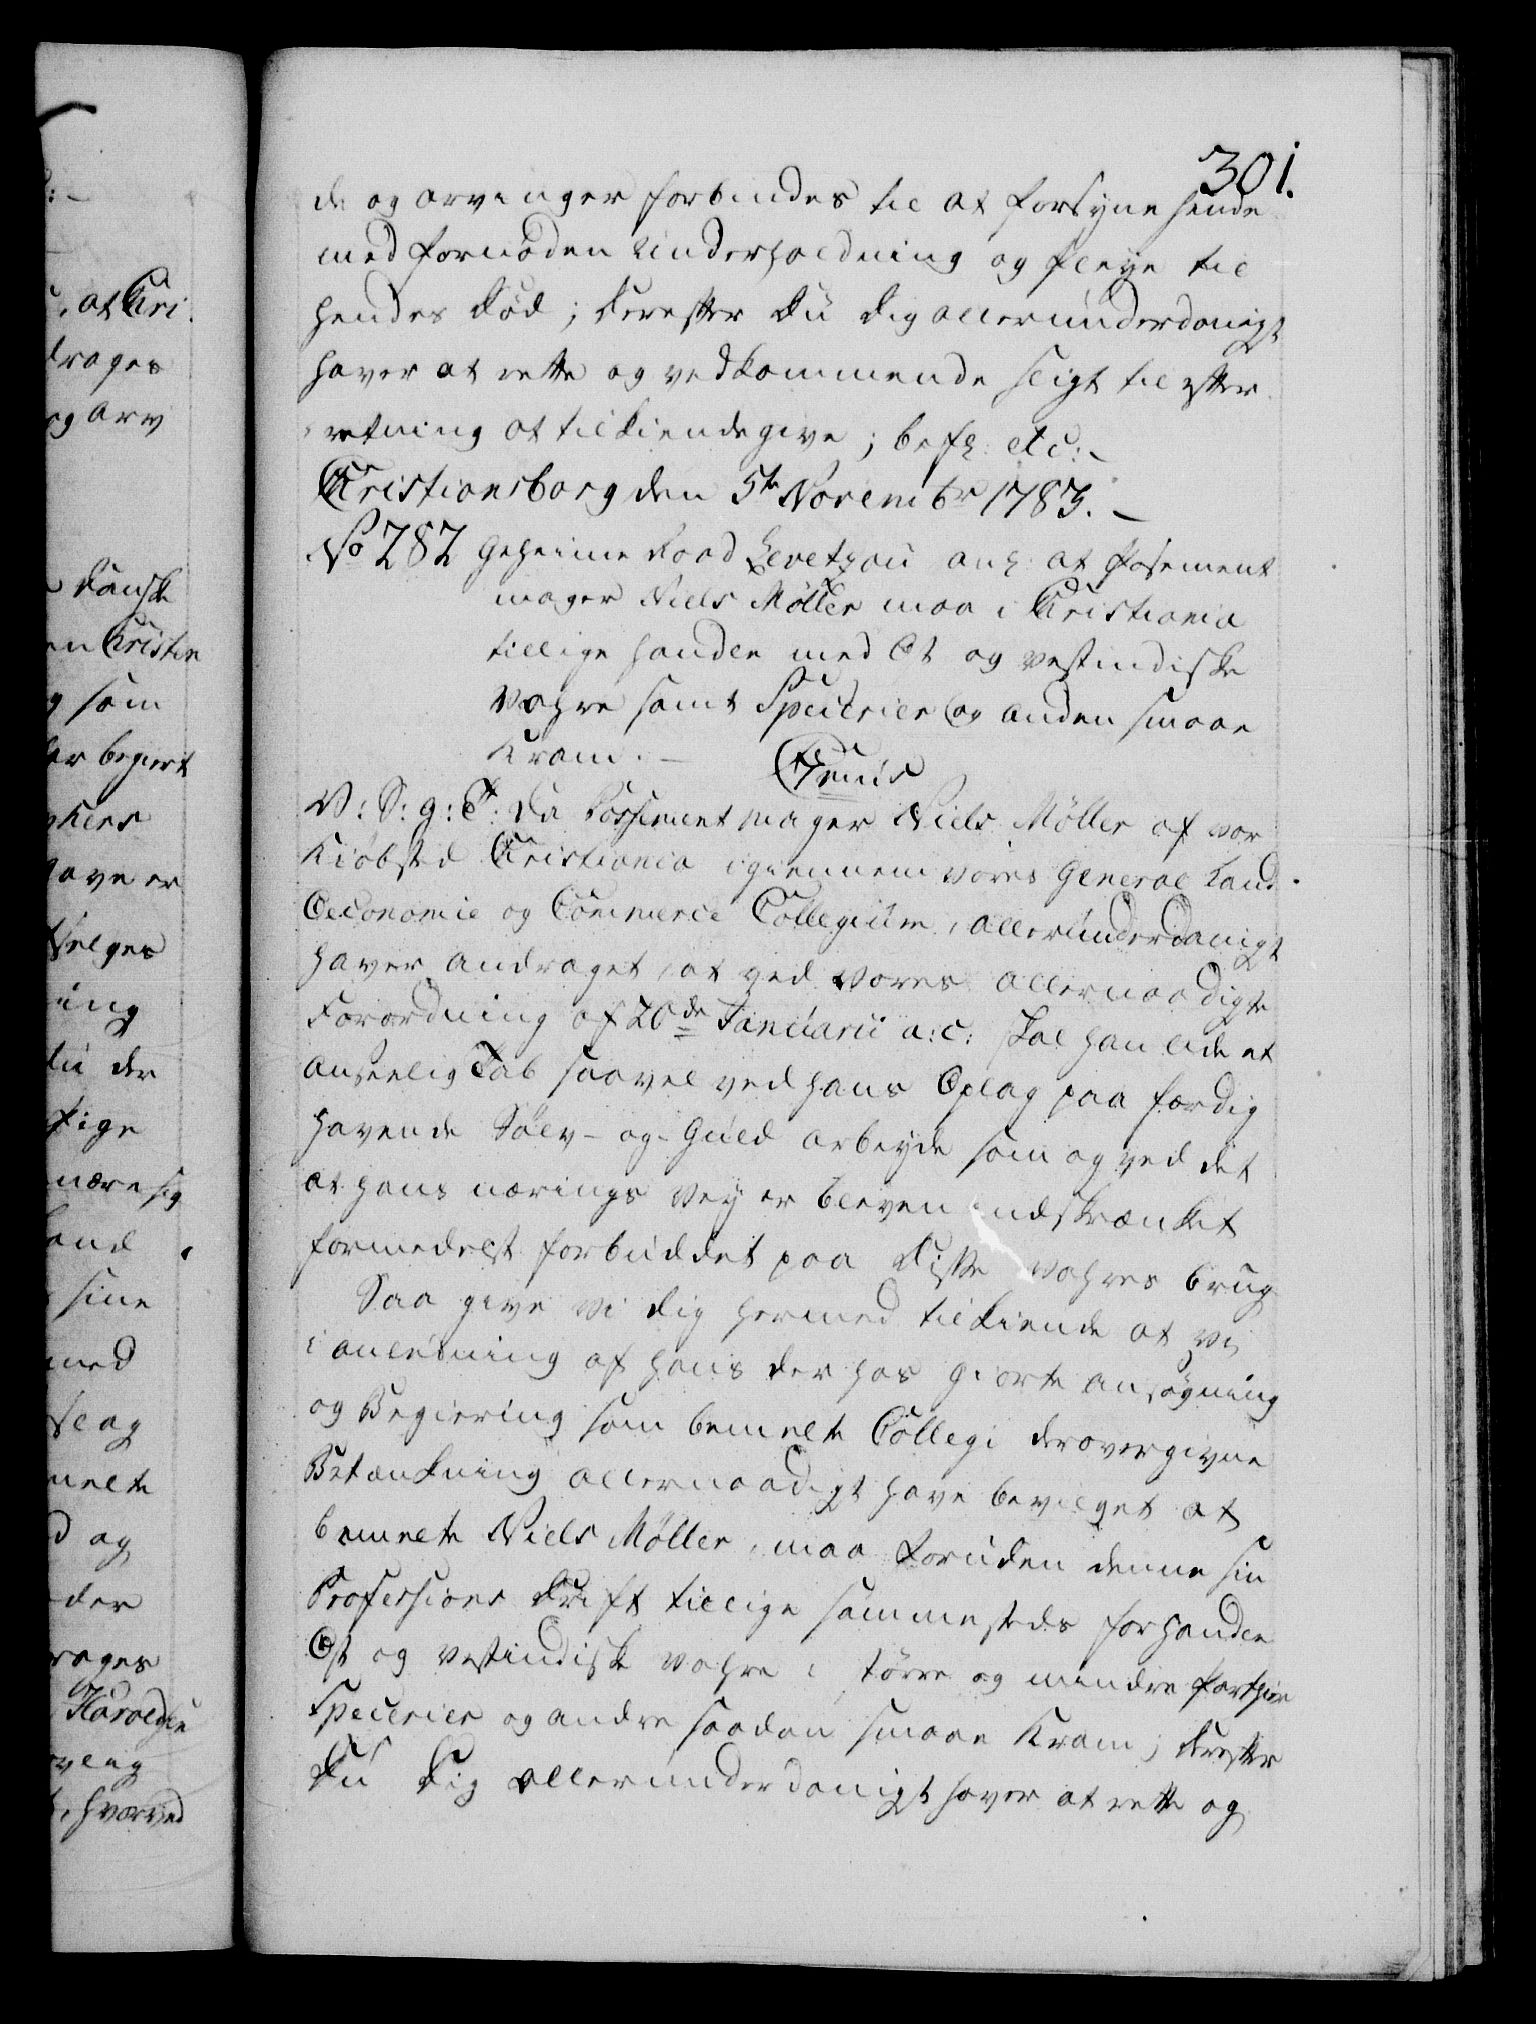 301.
de og arvinger forbindes til at forsyne hende
med fornøden Underholdning og Pleye til
hendes Død; derefter Du dig allerunderdanigst
haver at rette og vedkommende sligt til efter-
retning at tilkiendegive; befl: etc:
Christiansborg den 5te Novembr 1783.
No 282 Geheime Raad Levetzau anl: at Posement
mager Niels Møller maa i Christiania
tillige handle med Ost og vestindiske
Vahre samt Specerier og anden smaae
Kram.
Genis
V: S: g: T: Da Possement mager Niels Møller af vor
Kiøbsted Christiania igiennem vores General Land-
Oeconomie og Commerce Collegium, allerunderdanigst
haver andraget, at ved vores allernaadigste
Forordning af 20de Januarii a: c: skal han lide et
anseelig Tab saavel ved hans Oplag paa færdig
havende Sølv- og Guld arbeyde som og ved det
at hans nærings Vey er bleven indskrænket
formedelst forbuddet paa disse Vahres brug
Saa give Vi dig hermed tilkiende at Vi
i anledning af hans der hos giorte ansøgning
og Begiering som bemelte Collegii derover givne
Betænkning allernaadigst have bevilget at
bemelte Niels Møller, maa foruden denne sin
Professions Drift tillige sammesteds forhandle
Ost og vestindiske Vahre i større og mindre Partier
Specerier og andre saadan smaae Kram; derefter
Du Dig allerunderdanigst haver at rette og
at Chri
drages
og Arv
Danske
en Christen
g som
er begiert
ave er
ing
du der
nære sig
sine
med
melte
og
der
drages
Haralds
hvorved